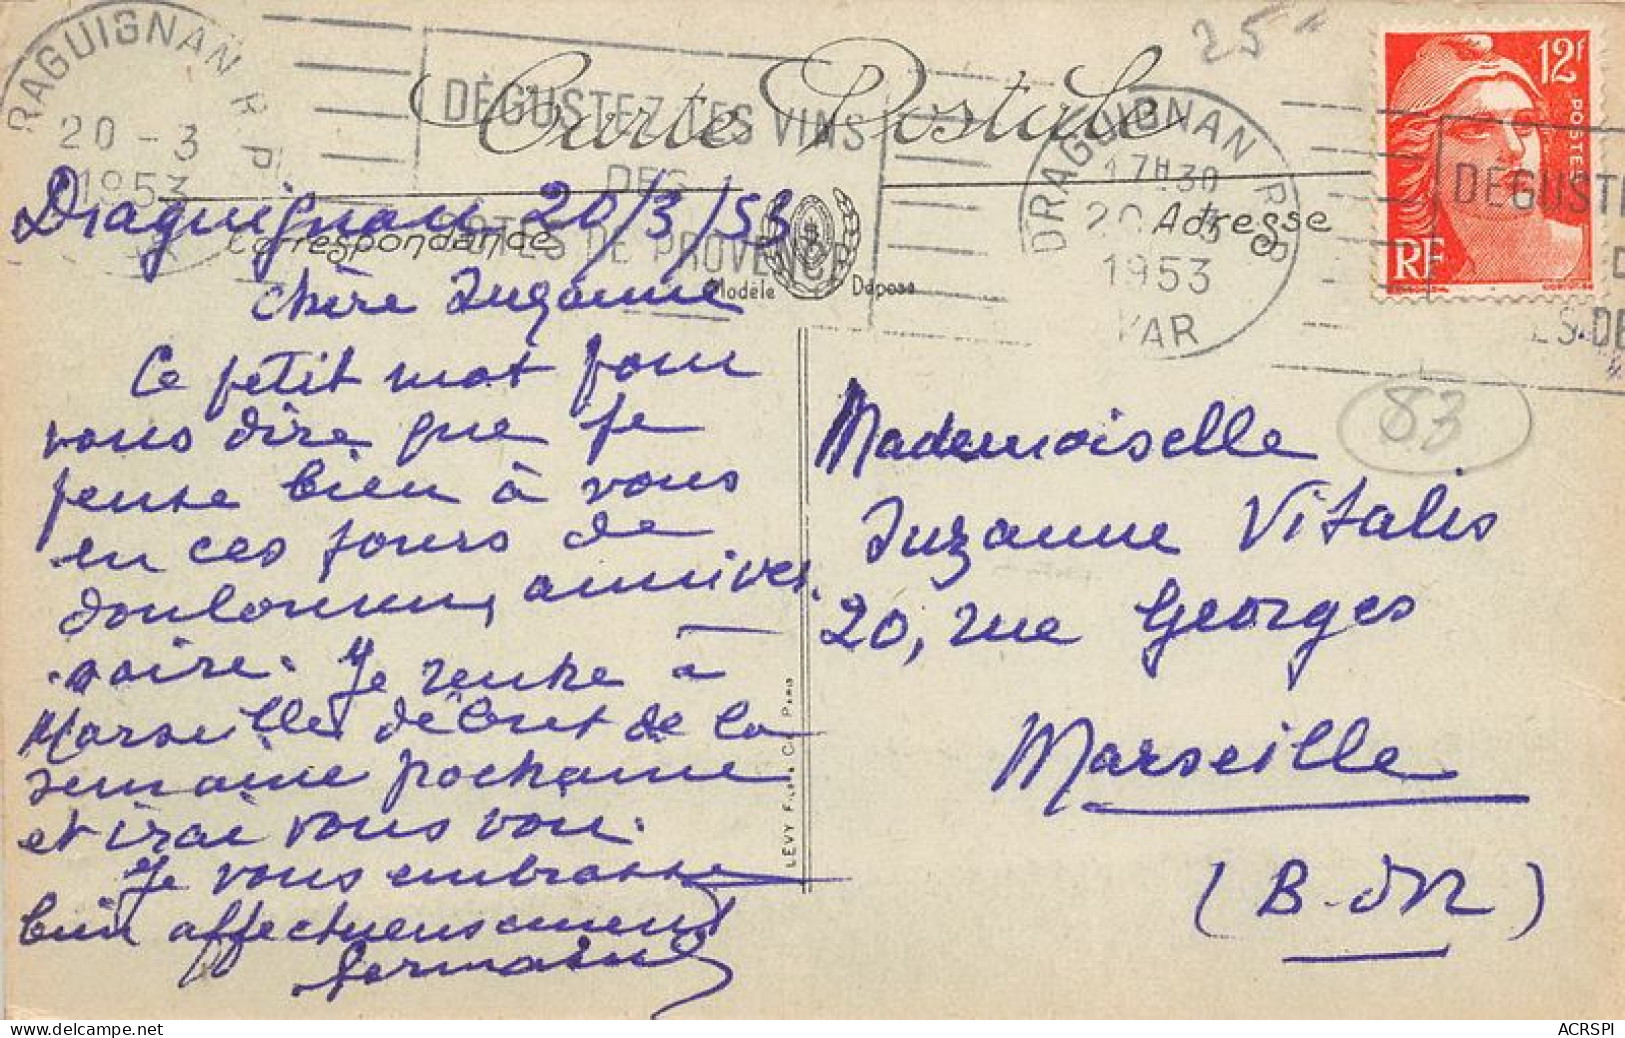 DRAGUIGNAN R.P.
20 - 3
1953
DÉGUSTEZ LES VINS
DES
CÔTES DE PROVENCE
Carte Postale
25
DRAGUIGNAN R.P.
17H30
20 - 3
1953
VAR
12f
POSTES
RF
DÉGUSTE
Correspondance
Adresse
Modèle Déposé
Draguignan 20/3/53
Chère Suzanne
Ce petit mot pour
vous dire que je
pense bien à vous
en ces jours de
douloureux anniver
.saire. Je rentre à
Marseille début de la
semaine prochaine
et irai vous voir.
Je vous embrasse
bien affectueusement
Germaine
LÉVY Fils & Cie PARIS
83
Mademoiselle
Suzanne Vitalis
20, rue Georges
Marseille
(B-dR)
delcampe.net
ACRSPI